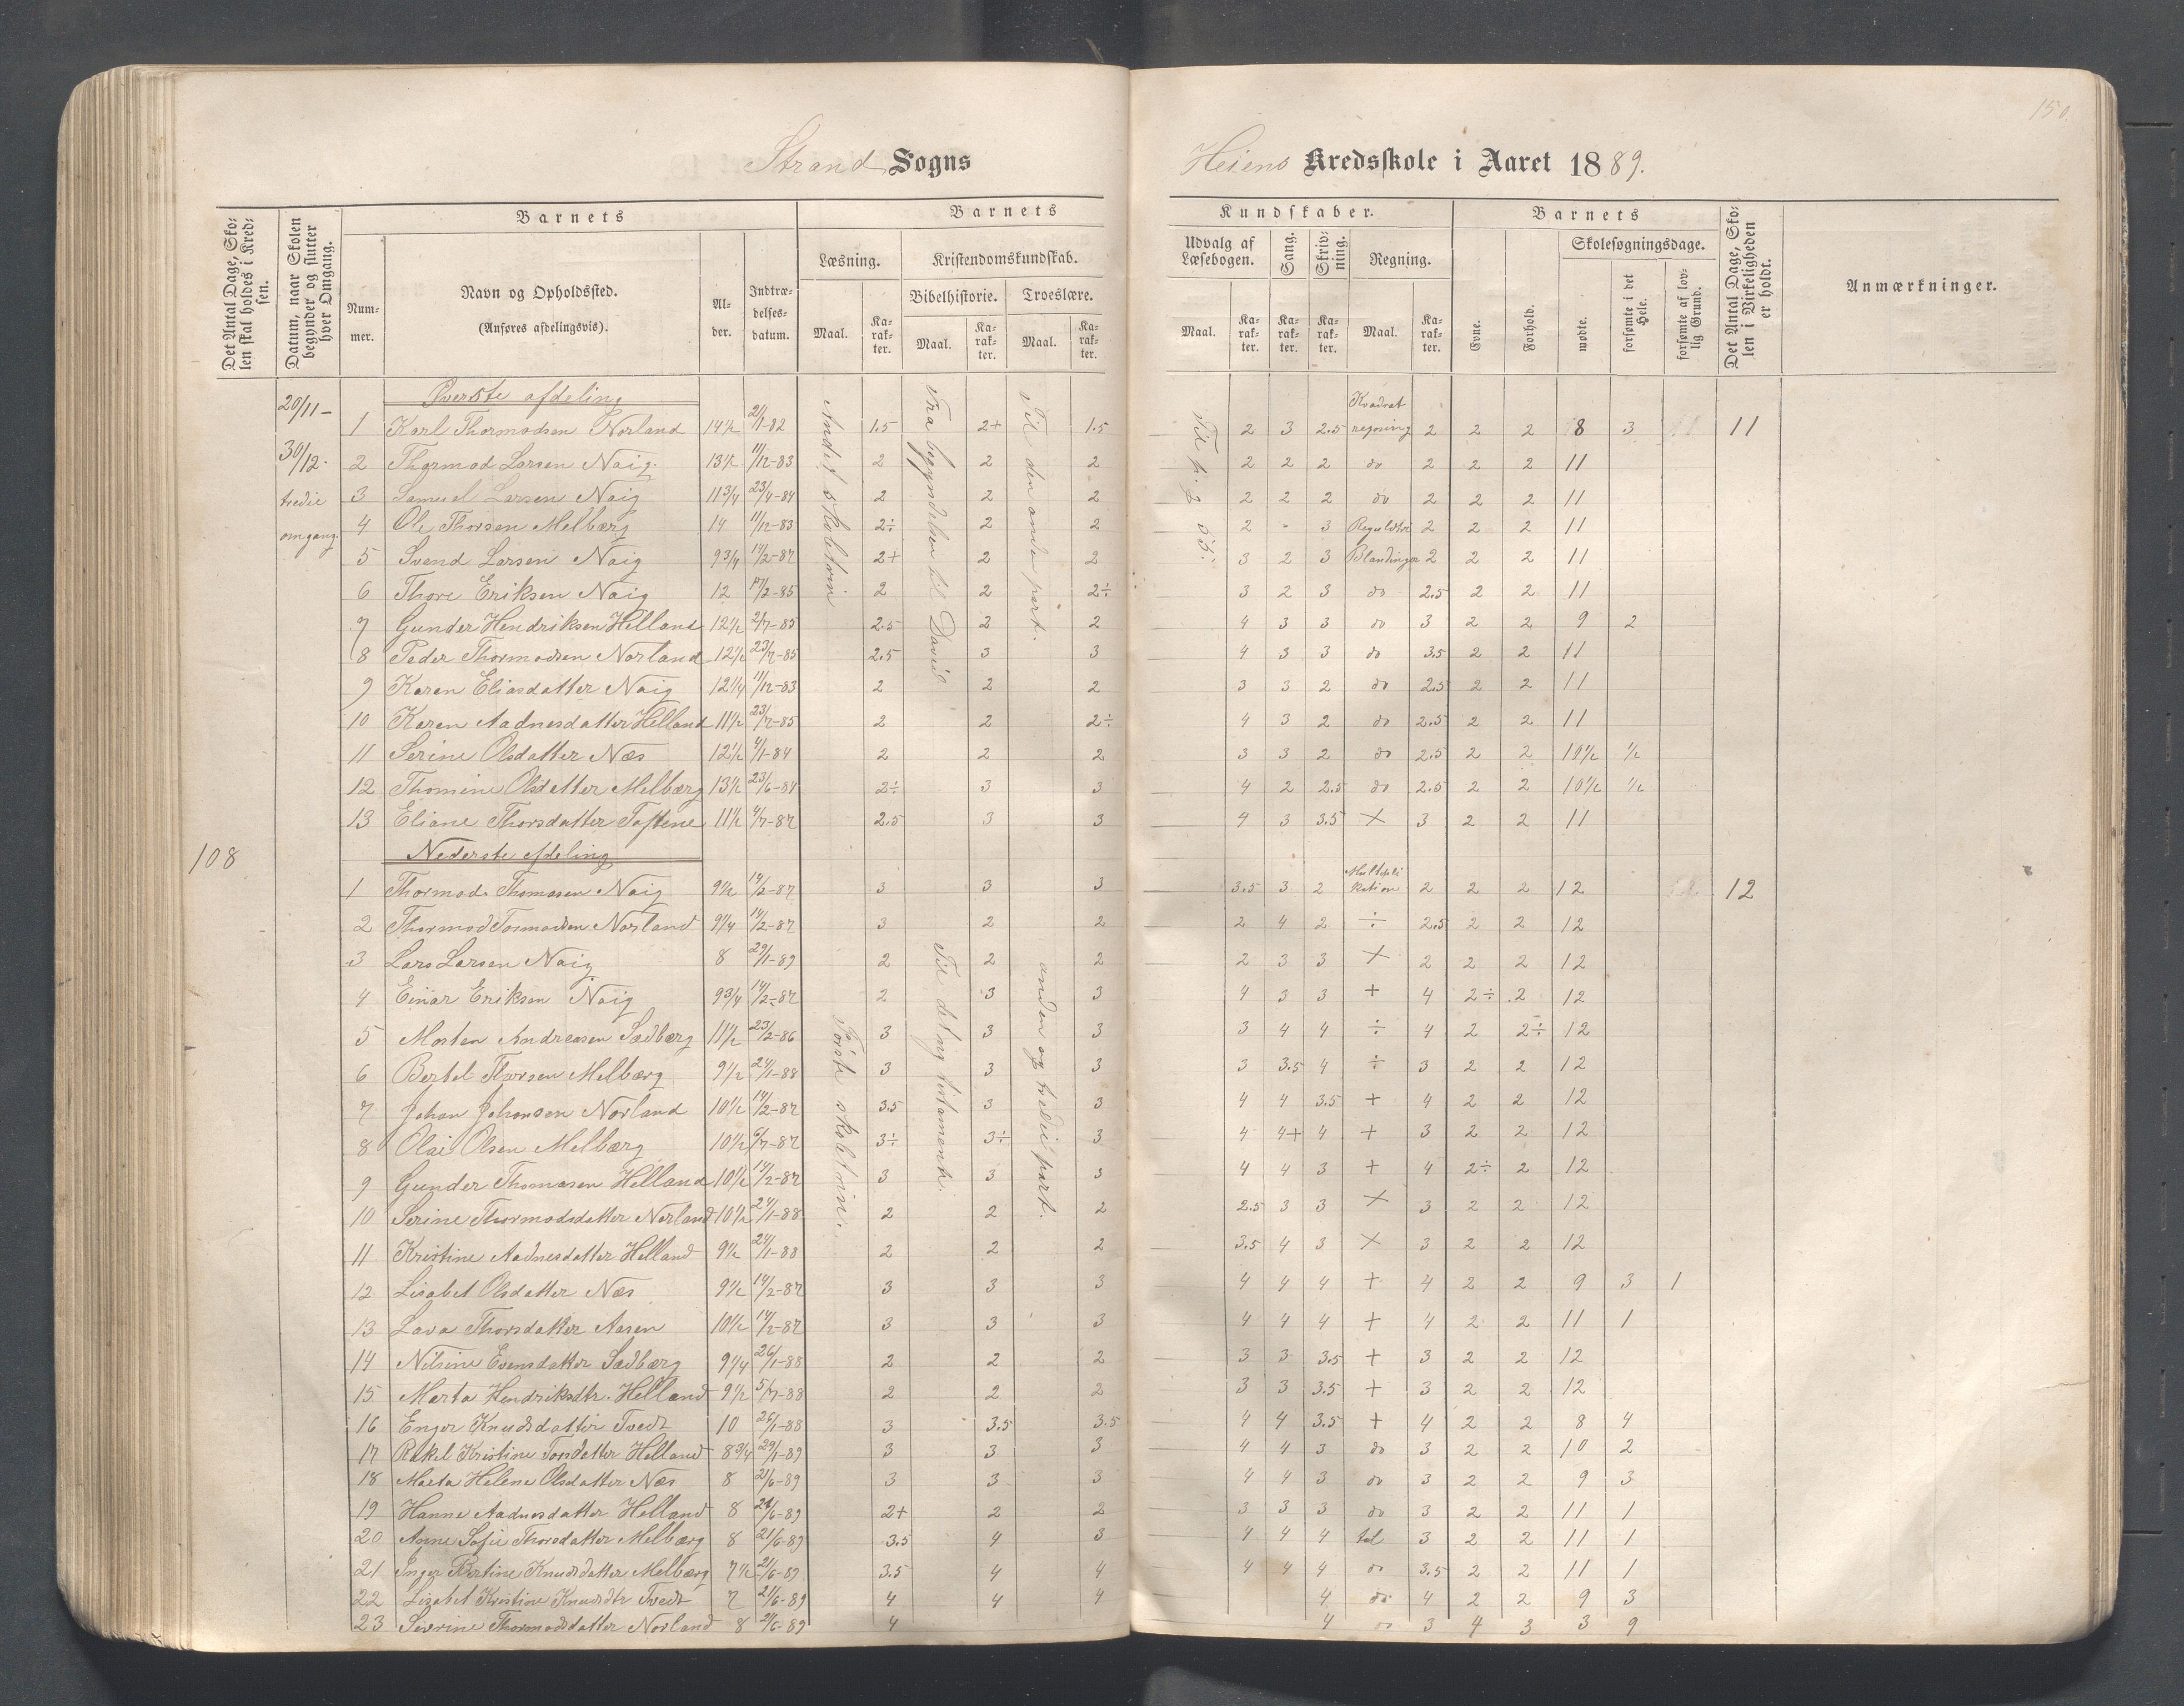 150.
Strand Sogns Heiens Kredsskole i Aaret 1889.
Det Antal Dage, Skolen skal holdes i Kredsen.
Datum, naar Skolen begynder og slutter hver Omgang.
Barnets
Nummer.
Navn og Opholdssted.
(Anføres afdelingsvis).
Alder.
Indtrædelsesdatum.
Barnets Kundskaber.
Læsning.
Maal. Karakter.
Kristendomskundskab.
Bibelhistorie. Troeslære.
Maal. Karakter. Maal. Karakter.
Udvalg af Læsebogen.
Maal. Karakter.
Sang. Karakter.
Skrivning. Karakter.
Regning.
Maal. Karakter.
Barnets
Evne. Forhold.
Skolesøgningsdage.
mødte. forsømte i det Hele. forsømte af lovlig Grund.
Det Antal Dage, Skolen i Virkeligheden er holdt.
Anmærkninger.
20/11 –
30/12.
tredie
omgang.
108
Øverste afdeling
Andet skoletrin
Fra begyndelsen til David
Til den anden part.
1 Karl Thormodsen Norland 14½ 2/1-82 1.5 2+ 1.5 2 3 2.5 Kvadratregning 2 2 2 8 3 11
2 Thormod Larsen Naig 13½ 11/12-83 2 2 2 2 2 2 do 2 2 2 11
3 Samuel Larsen Naig 11¾ 23/4-84 2 2 2 2 2 2 do 2 2 2 11
4 Ole Thorsen Melbærg 14 11/12-83 2÷ 2 2 2 - 3 Reguldetri 2 2 2 11
5 Svend Larsen Naig 9¾ 14/2-87 2+ 2 2 3 2 3 Blandinger 2 2 2 11
6 Thore Eriksen Naig 12 17/2-85 2 2 2÷ 3 2 3 do 2.5 2 2 11
7 Gunder Hendriksen Helland 12½ 2/7-85 2.5 2 2 4 3 3 do 3 2 2 9 2
8 Peder Thormodsen Norland 12½ 23/7-85 2.5 3 3 4 3 3 do 3.5 2 2 11
9 Karen Eliasdatter Naig 12¼ 11/12-83 2 2 2 3 3 2 do 2.5 2 2 11
10 Karen Aadnesdatter Helland 11½ 23/7-85 2 2 2÷ 4 3 2 do 2.5 2 2 11
11 Serine Olsdatter Næs 12½ 4/1-84 2 2 2 3 3 2 do 2.5 2 2 10½ ½
12 Thomine Olsdatter Melbærg 13½ 23/6-84 2÷ 3 3 4 2 2.5 do 2.5 2 2 10½ ½
13 Eliane Thorsdatter Toftene 11½ 4/7-87 2.5 3 3 4 3 3.5 × 3 2 2 11
Nederste afdeling
Første skoletrin.
Til det ny testamente.
anden og tredie part.
1 Thormod Thomasen Naig 9½ 14/2-87 3 3 3 3.5 3 2 Multiplikation 2 2 2 12 12
2 Thormod Tormodsen Norland 9¼ 14/2-87 3 2 2 2 4 2 ÷ 2.5 2 2 12
3 Lars Larsen Naig 8 29/1-89 2 2 2 2 3 3 × 2 2 2 12
4 Einar Eriksen Naig 9¾ 14/2-87 2 3 3 4 3 3 + 4 2÷ 2 12
5 Morten Andreasen Sædbærg 11½ 23/2-86 3 3 3 3 4 4 ÷ 4 2 2÷ 12
6 Bertel Thorsen Melbærg 9½ 24/1-88 3 3 3 3 3.5 4 ÷ 3 2 2 12
7 Johan Johansen Norland 10½ 14/2-87 3.5 3 3 4 4 3.5 + 4 2 2 12
8 Olai Olsen Melbærg 10½ 6/7-87 3÷ 3÷ 3 4 4+ 4 + 3 2 2 12
9 Gunder Thomasen Helland 10½ 14/2-87 3 3 3 4 4 3 + 4 2÷ 2 12
10 Serine Thormodsdatter Norland 10½ 24/1-88 2 2 2 2.5 3 3 × 3 2 2 12
11 Kristine Aadnesdatter Helland 9½ 24/1-88 2 2 2 3.5 4 3 × 3 2 2 12
12 Lisabet Olsdatter Næs 9½ 14/2-87 3 3 3 4 4 4 + 4 2 2 9 3 1
13 Lava Thorsdatter Aasen 10½ 14/2-87 3 3 3 4 4 4 + 4 2 2 11 1
14 Nilsine Evensdatter Sædbærg 9¼ 26/1-88 2 2 2 3 3 3.5 + 3 2 2 12
15 Marta Hendriksdtr. Helland 9½ 5/7-88 2 2 2 3 3 3.5 + 3 2 2 12
16 Enger Knudsdatter Tvedt 10 26/1-88 3 3.5 3.5 4 4 3.5 + 4 2 2 8 4
17 Rakel Kristine Torsdatter Helland 8¾ 29/1-89 3 3 3 4 4 3 do 3 2 2 10 2
18 Marta Helene Olsdatter Næs 8 21/6-89 3 3 3 4 4 3 do 3 2 2 9 3
19 Hanne Aadnesdatter Helland 8 21/6-89 2+ 2 2 3 3 3 do 3 2 2 11 1
20 Anne Sofie Thorsdatter Melbærg 8 21/6-89 3.5 4 3 4 4 4 tal 3 2 2 11 1
21 Inger Bertine Knudsdatter Melbærg 7½ 21/6-89 3.5 4 4 4 4 4 do 3.5 2 2 11 1
22 Lisabet Kristine Knudsdtr Tvedt 7 21/6-89 4 4 4 4 do 4 2 2 9 3
23 Severine Thormodsdatter Norland 8 21/6-89 4 4 do 3 4 3 3 9